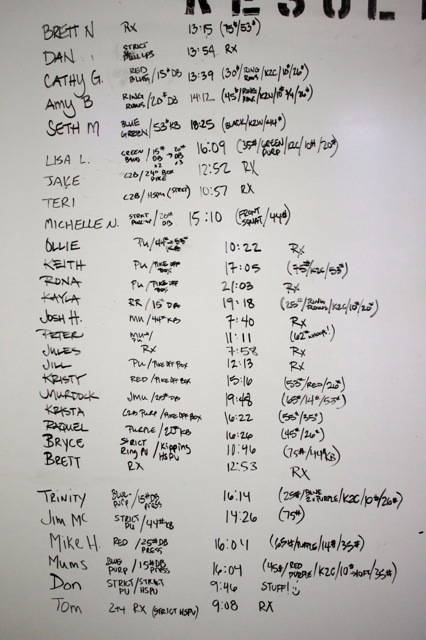 RESULT
BRETT N RX 13:15 (75#/53#)
DAN STRICT PULLUPS 13:54 RX
CATHY G. RED RING/15# DB 13:39 (30#/RING ROWS/K2C/10#/26#)
AMY B RING ROWS/20# DB 14:12 (45#/RING
SETH M BLUE GREEN/53# KB 18:25 (BLACK/K2W/44#)
LISA L. GREEN 16:09 (35#/GREEN PURP/K2C/10#/20#)
JAKE C2B/24" BOX PIKE 12:52 RX
TERI C2B/HSPU (STRICT) 10:57 RX
MICHELLE N. STRICT PULL-UP/20# DB 15:10 (FRONT SQUAT/44#)
OLLIE PU/44# 10:22 RX
KEITH PU/PIKE OFF BOX 17:05 (75#/K2C/53#)
RONA PU/PIKE OFF BOX 21:03 RX
KAYLA RR/15# DB 19:18 (25#/RING ROWS/K2C/10#/26#)
JOSH H. MU/44# KB 7:40 RX
PETER MU 11:11 (62# WHOOPS!)
JULES RX 7:58 RX
JILL PU/PIKE OFF BOX 12:13 RX
KRISTY RED/PIKE OFF BOX 15:16 (55#/RED/26#)
MURDOCK JMU/25# DB 19:48 (65#/14#/53#)
KRISTA C2B PURP/PIKE OFF BOX 16:22 (55#/35#)
RAQUEL PURPLE/ KB 16:26 (45#/26#)
BRYCE STRICT RING PU/KIPPING HSPU 10:46 (75#/44# KB)
BRETT RX 12:53 RX
TRINITY BLUE PURP/15# DB PRESS 16:14 (25#/BLUE PURPLE/K2C/10#/26#)
JIM MC STRICT PU/44# KB 14:26 (75#)
MIKE H. RED/25# DB PRESS 16:01 (65#/PURPLE/14#/35#)
MUMS BLUE PURP/15# DB PRESS 16:04 (45#/RED PURPLE/K2C/10# 35#)
DON STRICT/STRICT PU/HSPU 9:46 STUFF!
TOM RX (STRICT HSPU) 9:08 RX